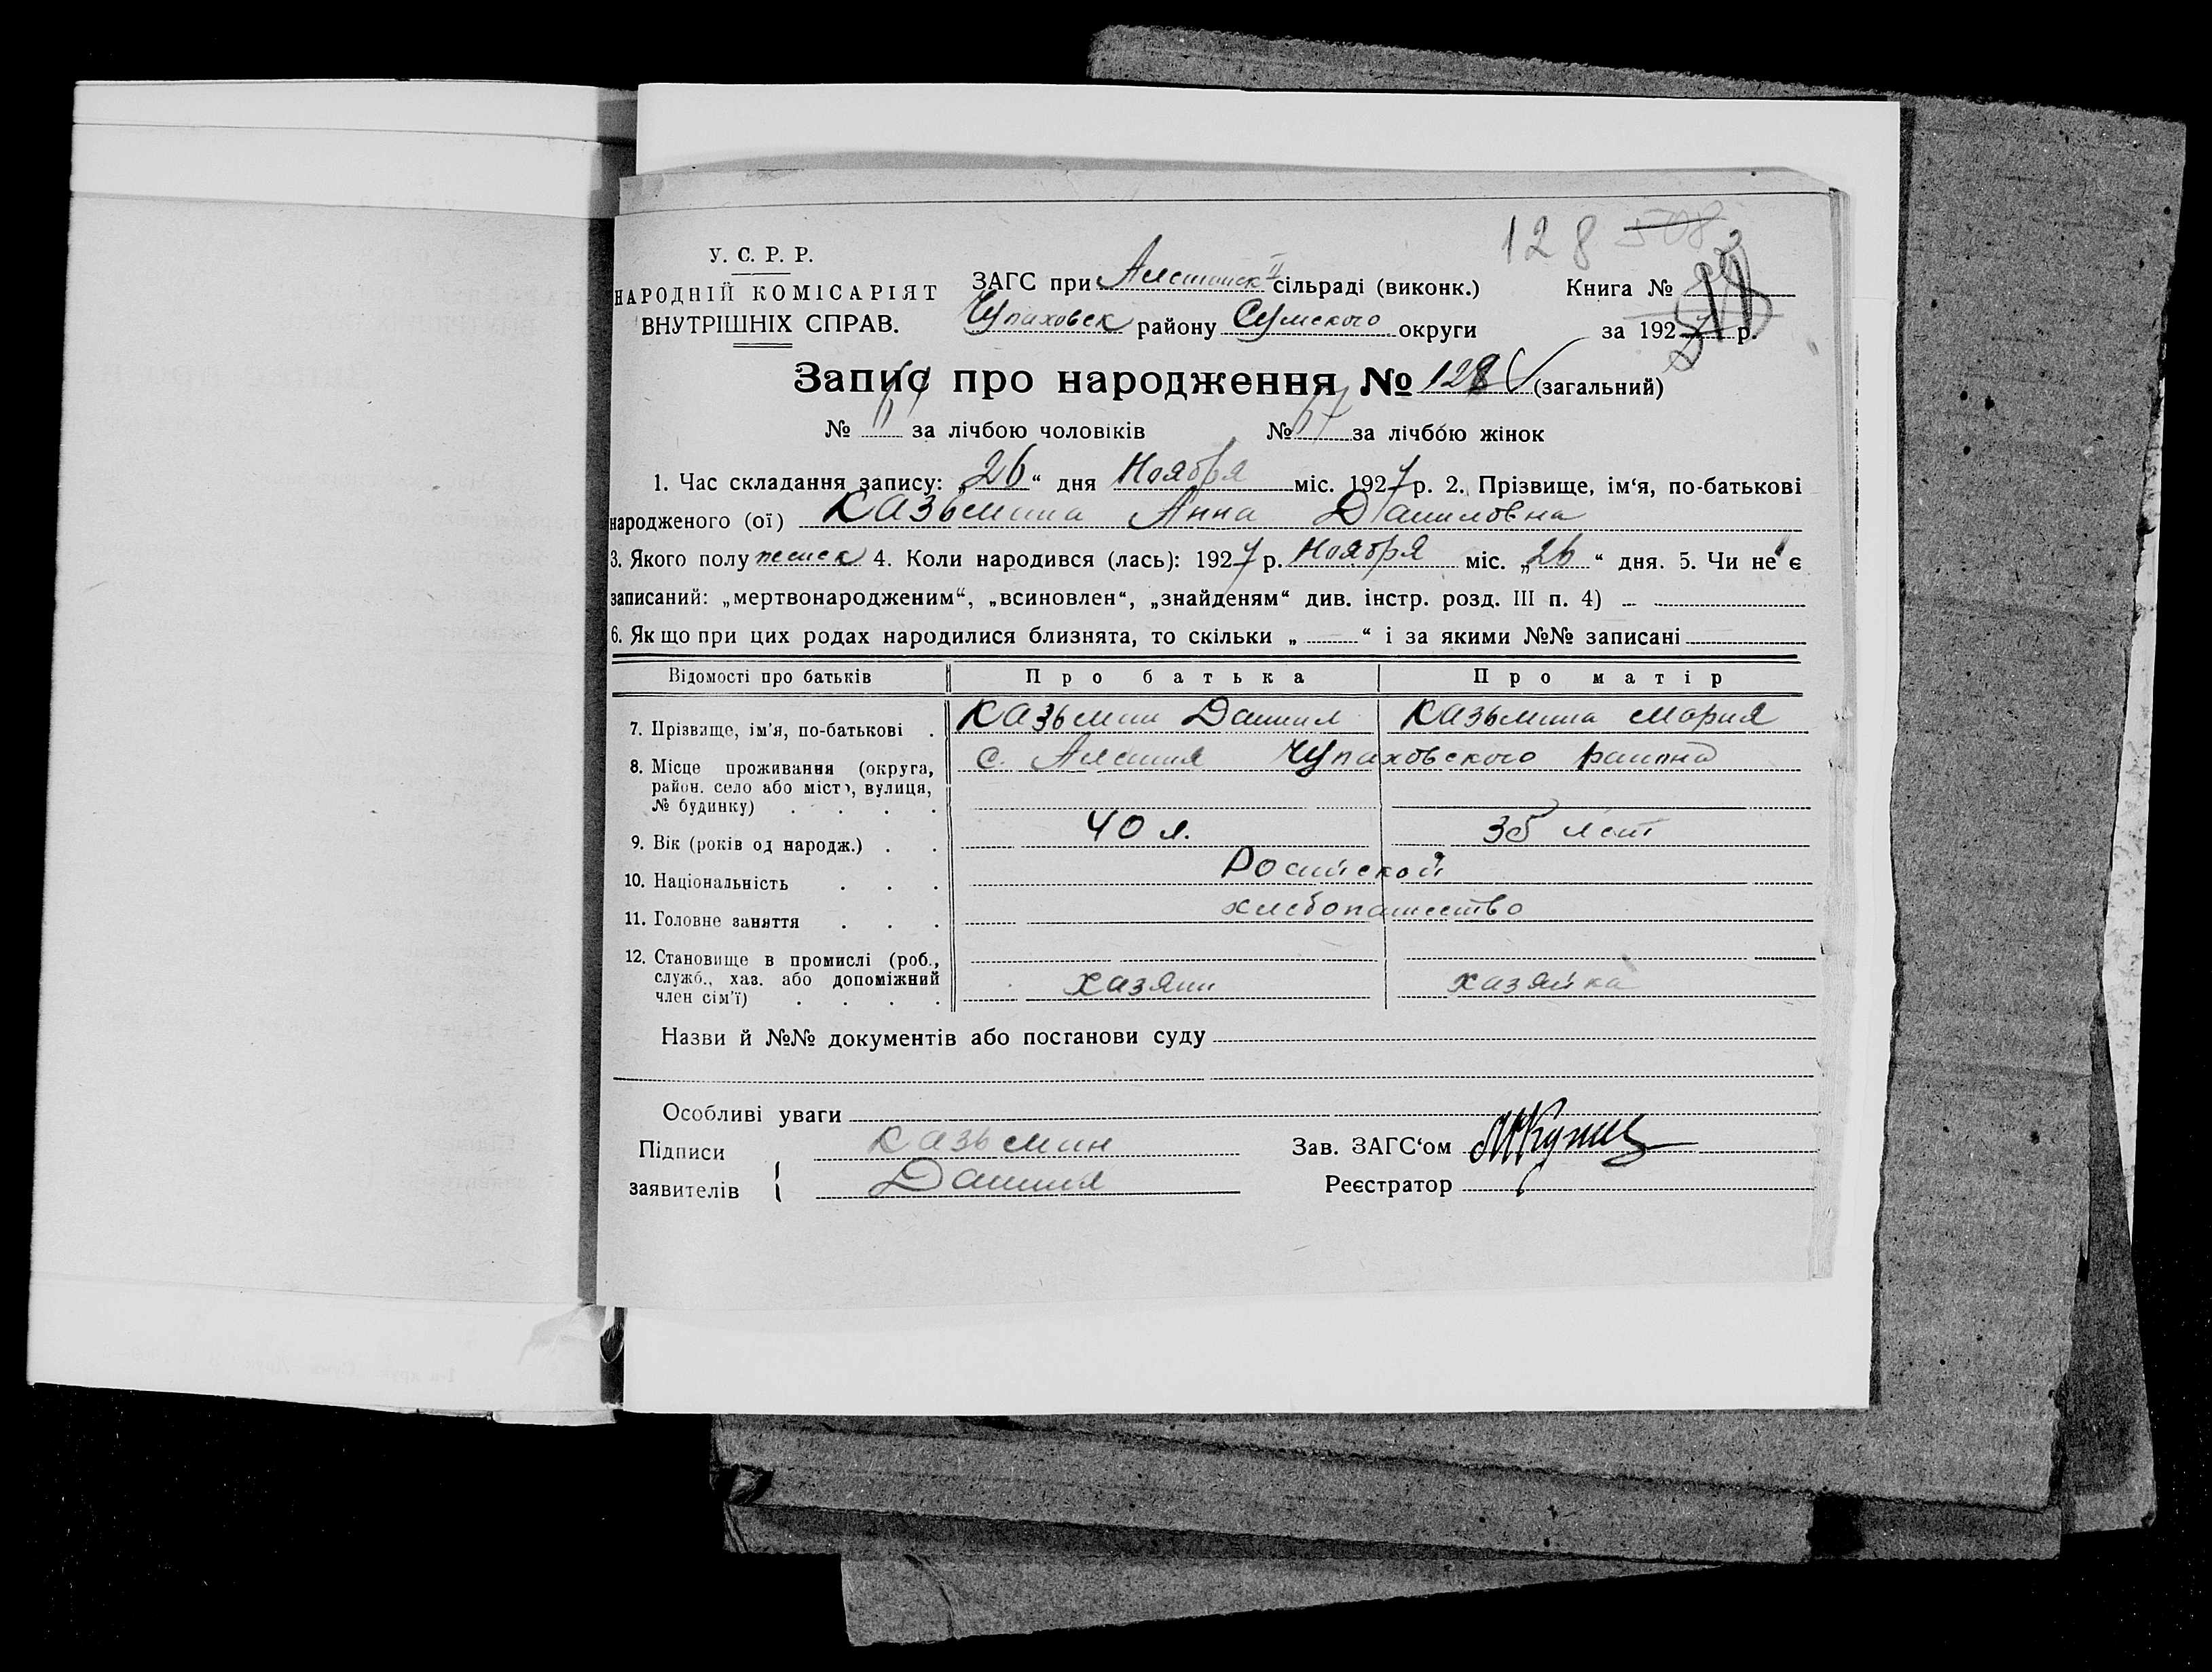 128 508
У. С. Р. Р.
НАРОДНІЙ КОМІСАРІЯТ
ВНУТРІШНІХ СПРАВ.
ЗАГС при II сільраді (виконк.)
Чупаховск району Сумского округи
Книга №
за 1927 р.
Запис про народження № 128 (загальний)
№ за лічбою чоловіків № за лічбою жінок
1. Час складання запису: „26“ дня Ноября міс. 1927 р. 2. Прізвище, ім‘я, по-батькові
народженого (ої) Казьмина Анна Даниловна
3. Якого полу женск 4. Коли народився (лась): 1927 р. Ноября міс. „26“ дня. 5. Чи не є
записаний: „мертвонародженим“, „всиновлен“, „знайденям“ див. інстр. розд. III п. 4) –
6. Якщо при цих родах народилися близнята, то скільки „ “ і за якими №№ записані
Відомості про батьків Про батька Про матір
7. Прізвище, ім‘я, по-батькові . Казьмин Даниил Казьмина Мария
8. Місце проживання (округа, с. Алешня Чупаховского района
район. село або місто, вулиця,
№ будинку) . . . .
9. Вік (років од народж.) . . 40 л. 35 лет
10. Національність . . . Росийской
11. Головне заняття . . . хлебопашество
12. Становище в промислі (роб.,
служб., хаз. або допоміжний хазяин хазяйка
член сім‘ї) . . . .
Назви й №№ документів або постанови суду
Особливі уваги
Підписи Казьмин Зав. ЗАГС‘ом
заявителів { Даниил Реєстратор